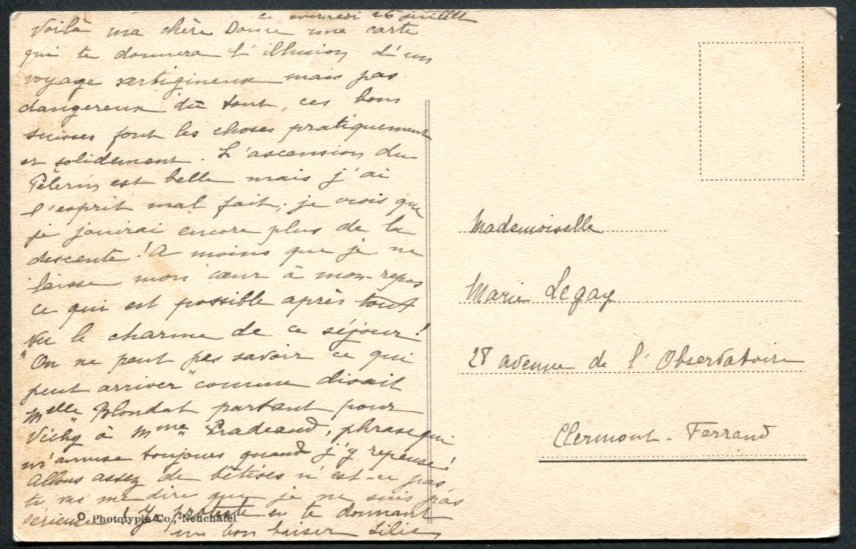 ce vendredi 26 juillet
Voilà ma chère Doune une carte
qui te donnera l'illusion d'un
voyage vertigineux mais pas
dangereux du tout, ces bons
suisses font les choses pratiquement
et solidement. L'ascension du
Pèlerin est belle mais j'ai
l'esprit mal fait, je crois que
je jouirai encore plus de la
descente ! A moins que je ne
laisse mon cœur à mon repos
ce qui est possible après tout
vu le charme de ce séjour !
"On ne peut pas savoir ce qui
peut arriver" comme disait
Melle Blondat partant pour
Vichy à Mme Pradeaud, phrase qui
m'amuse toujours quand j'y repense !
Allons assez de bêtises n'est-ce pas
tu vas me dire que je ne suis pas
sérieuse. J'y proteste en te donnant
un bon baiser Lilie
Mademoiselle
Marie Legay
28 avenue de l'Observatoire
Clermont-Ferrand
Phototypie Co., Neuchâtel